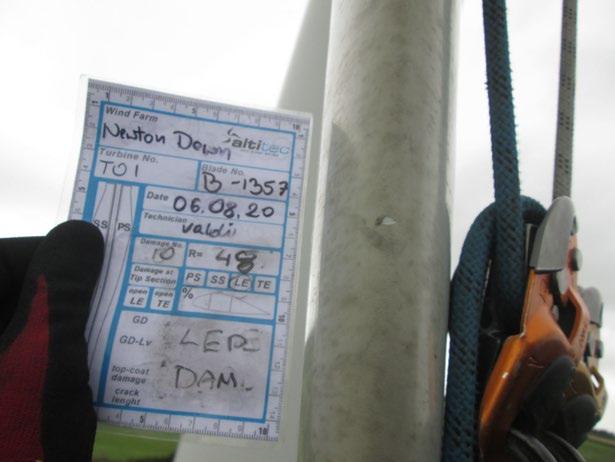 Wind Farm
Newton Down
altitec
Turbine No.
Blade No.
T01
B-1357
Date 06.08.20
SS PS
Technician
Valdis
Damage No. R= 48
10
Damage at
Tip Section
PS SS LE TE
open open %
LE TE
GD
GD-Lv
LEP
DAM.
top-coat
damage
crack
lenght
10